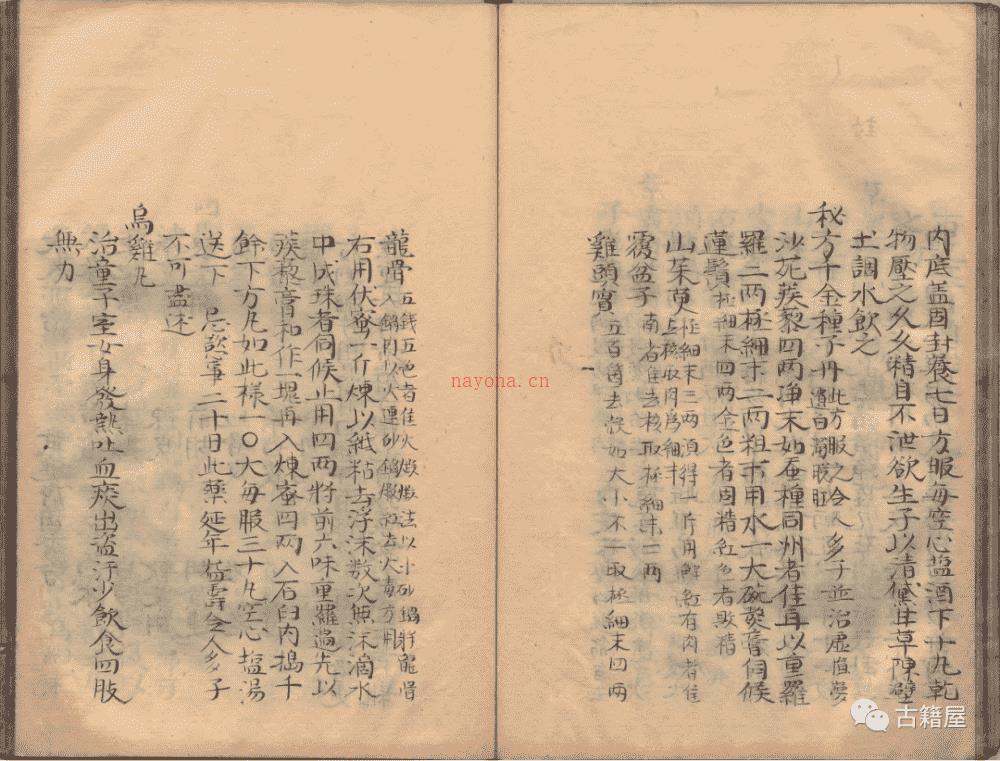 內底盖固封養七日方服每空心盐酒下十丸乾
物壓之久久精自不泄欲生子以清黛甘草陳壁
土調水飲之
秘方千金種子丹 此方服之令人多子並治虛損夢遺白濁
沙苑蒺藜四两净末如蚕種同州者佳再以重羅
羅二两極細末二两粗末用水一大碗熬膏伺候
蓮鬚極細末四两金色者固精紅色者敗精
山茱萸極細末三两須得一斤用解紅有肉者佳上核取肉為細末
覆盆子南者佳去核取極細末二两
雞頭實五百箇去殼如大小不一取極細末四两
龍骨五錢五色者佳火煅煅法以小砂鍋將龍骨入鍋內以火連砂鍋煅去火毒方用
右用伏蜜一斤煉以紙粘去浮沫数次無沫滴水
中成珠者伺候止用四两將前六味重羅過先以
蒺藜膏和作一塊再入煉蜜四两入石臼內搗千
餘下方丸如此樣一〇大每服三十丸空心盐湯
送下 忌慾事二十日此藥延年益壽令人多子
不可盡述
烏雞丸
治童子室女身發熱吐血痰出盗汗少飲食四肢
無力
nayona.cn
古籍屋